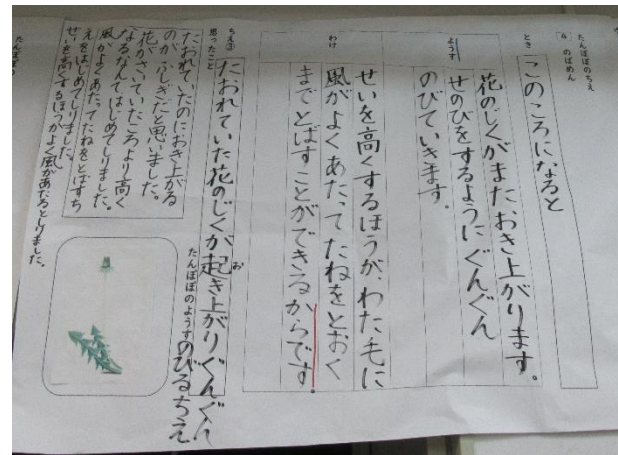 たんぽぽのちえ
4 のばめん
とき
このころになると
ようす
花のじくがまたおき上がります。
せのびをするようにぐんぐん
のびていきます。
わけ
せいを高くするほうが、わた毛に
風がよくあたってたねをとおく
までとばすことができるからです。
ちえ③
たおれていた花のじくが起き上がりぐんぐん
お
のびるちえ
思ったこと
たおれていたのにおき上がる
のがふしぎだと思いました。
花がさいていたころより高く
なるなんてはじめてしりました。
風がよくあたってたねをとばすち
えをはじめてしりました。
せいを高くするほうがよく風があたるとしりました。
たんぽぽのようす